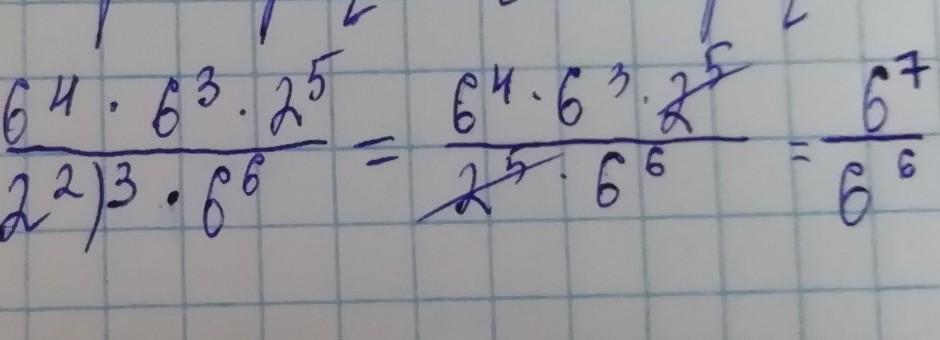 6⁴ · 6³ · 2⁵ / 2²)³ · 6⁶ = 6⁴ · 6³ · 2⁵ / 2⁵ · 6⁶ = 6⁷ / 6⁶